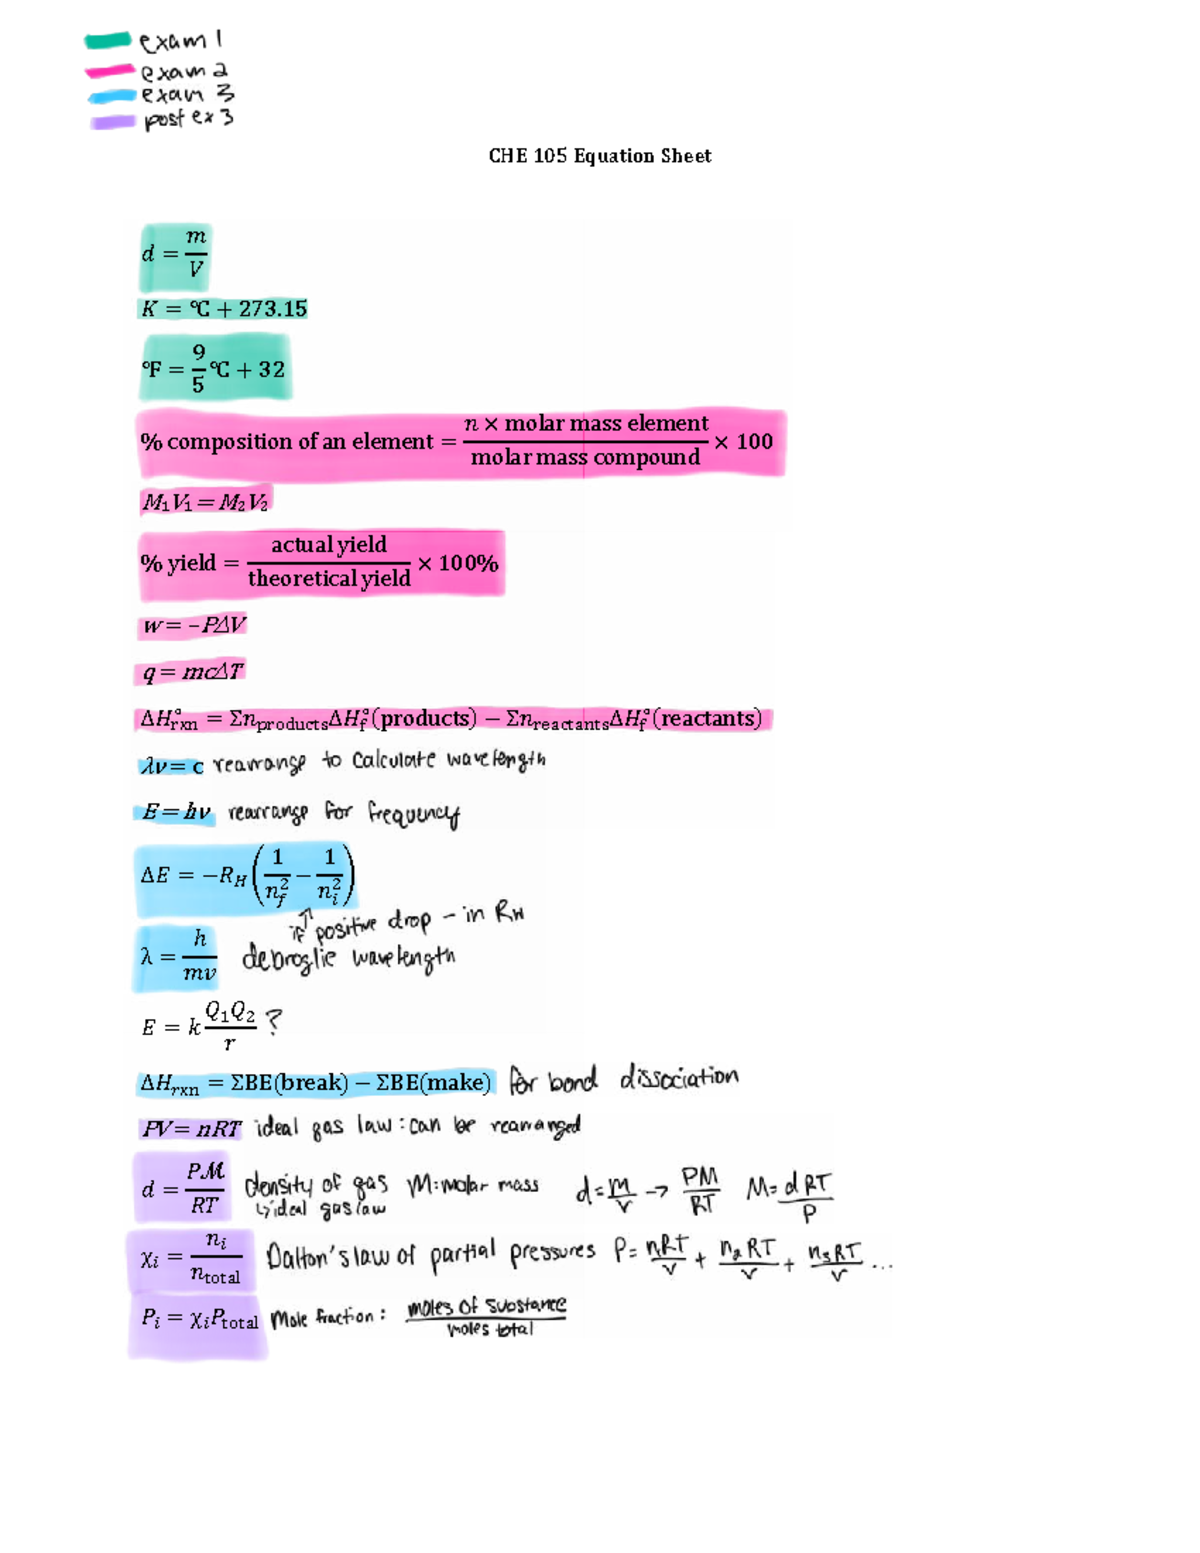 exam 1
exam 2
exam 3
post ex 3
CHE 105 Equation Sheet
d = m/V
K = °C + 273.15
°F = 9/5 °C + 32
% composition of an element = n × molar mass element / molar mass compound × 100
M₁V₁ = M₂V₂
% yield = actual yield / theoretical yield × 100%
w = –PΔV
q = mcΔT
ΔH°rxn = Σn_products ΔH°f(products) − Σn_reactants ΔH°f(reactants)
λν = c rearrange to calculate wavelength
E = hν rearrange for frequency
ΔE = −R_H (1/n_f² − 1/n_i²)
if positive drop − in RH
λ = h/mv debroglie wavelength
E = k Q₁Q₂/r ?
ΔHrxn = ΣBE(break) − ΣBE(make) for bond dissociation
PV = nRT ideal gas law: can be rearranged
d = Pℳ/RT density of gas M: molar mass d = m/v → PM/RT M = dRT/P
↳ ideal gas law
χᵢ = nᵢ/n_total Dalton's law of partial pressures P = n₁RT/v + n₂RT/v + n₃RT/v ...
Pᵢ = χᵢP_total Mole fraction: moles of substance / moles total